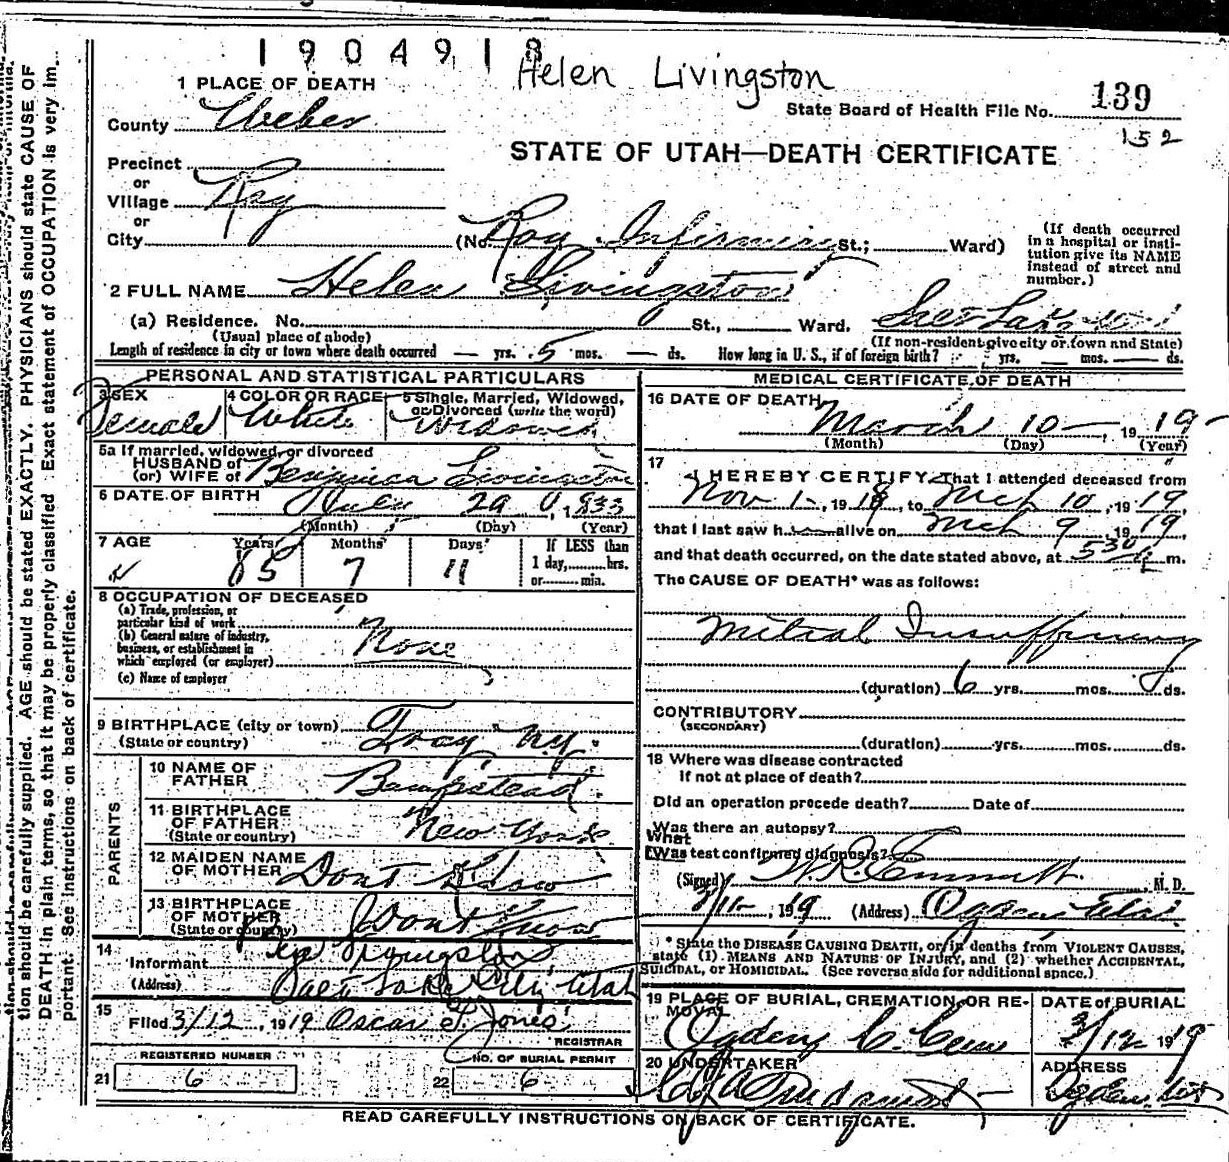 1904918
Helen Livingston
1 PLACE OF DEATH
State Board of Health File No. 139
152
County Weber
STATE OF UTAH—DEATH CERTIFICATE
Precinct
or
Village Roy
or
City (No. Roy Infirmiry St.; Ward)
(If death occurred in a hospital or insti-
tution give its NAME
instead of street and
number.)
2 FULL NAME Helen Livingston
(a) Residence. No. St., Ward. Salt Lake
(Usual place of abode) (If non-resident give city or town and State)
Length of residence in city or town where death occurred — yrs. 5 mos. — ds. How long in U. S., if of foreign birth? yrs. mos. ds.
PERSONAL AND STATISTICAL PARTICULARS
3 SEX Female
4 COLOR OR RACE White
5 Single, Married, Widowed,
or Divorced (write the word)
Widowed
5a If married, widowed, or divorced
HUSBAND of
(or) WIFE of Livingston
6 DATE OF BIRTH July 29, 1833
(Month) (Day) (Year)
7 AGE Years 85 Months 7 Days 11
If LESS than
1 day, hrs.
or min.
8 OCCUPATION OF DECEASED
(a) Trade, profession, or
particular kind of work
(b) General nature of industry,
business, or establishment in
which employed (or employer) None
(c) Name of employer
9 BIRTHPLACE (city or town) Troy NY.
(State or country)
PARENTS
10 NAME OF
FATHER Bumpstead
11 BIRTHPLACE
OF FATHER New York
(State or country)
12 MAIDEN NAME
OF MOTHER Dont Know
13 BIRTHPLACE
OF MOTHER Dont Know
(State or country)
14
Informant Livingston
(Address) Salt Lake City Utah
15
Filed 3/12, 1919 Oscar T. Jones
REGISTRAR
REGISTERED NUMBER NO. OF BURIAL PERMIT
21 6 22 6
MEDICAL CERTIFICATE OF DEATH
16 DATE OF DEATH
March 10 — , 1919
(Month) (Day) (Year)
17
I HEREBY CERTIFY, That I attended deceased from
Nov 1-, 1918, to Mch 10, 1919,
that I last saw h alive on Mch 9, 1919,
and that death occurred, on the date stated above, at 530 m.
The CAUSE OF DEATH* was as follows:
Mitral Insufficiency
(duration) 6 yrs. mos. ds.
CONTRIBUTORY
(SECONDARY)
(duration) yrs. mos. ds.
18 Where was disease contracted
if not at place of death?
Did an operation precede death? Date of
Was there an autopsy?
What
Was test confirmed diagnosis?
(Signed) , M. D.
3/11-, 1919 (Address) Ogden Utah
* State the DISEASE CAUSING DEATH, or, in deaths from VIOLENT CAUSES,
state (1) MEANS AND NATURE OF INJURY, and (2) whether ACCIDENTAL,
SUICIDAL, or HOMICIDAL. (See reverse side for additional space.)
19 PLACE OF BURIAL, CREMATION, OR RE-
MOVAL
Ogden C. Cem
DATE of BURIAL
3/12 1919
20 UNDERTAKER
ADDRESS
Ogden, Utah
READ CAREFULLY INSTRUCTIONS ON BACK OF CERTIFICATE.
tion should be carefully supplied. AGE should be stated EXACTLY. PHYSICIANS should state CAUSE OF
DEATH in plain terms, so that it may be properly classified. Exact statement of OCCUPATION is very im-
portant. See instructions on back of certificate.